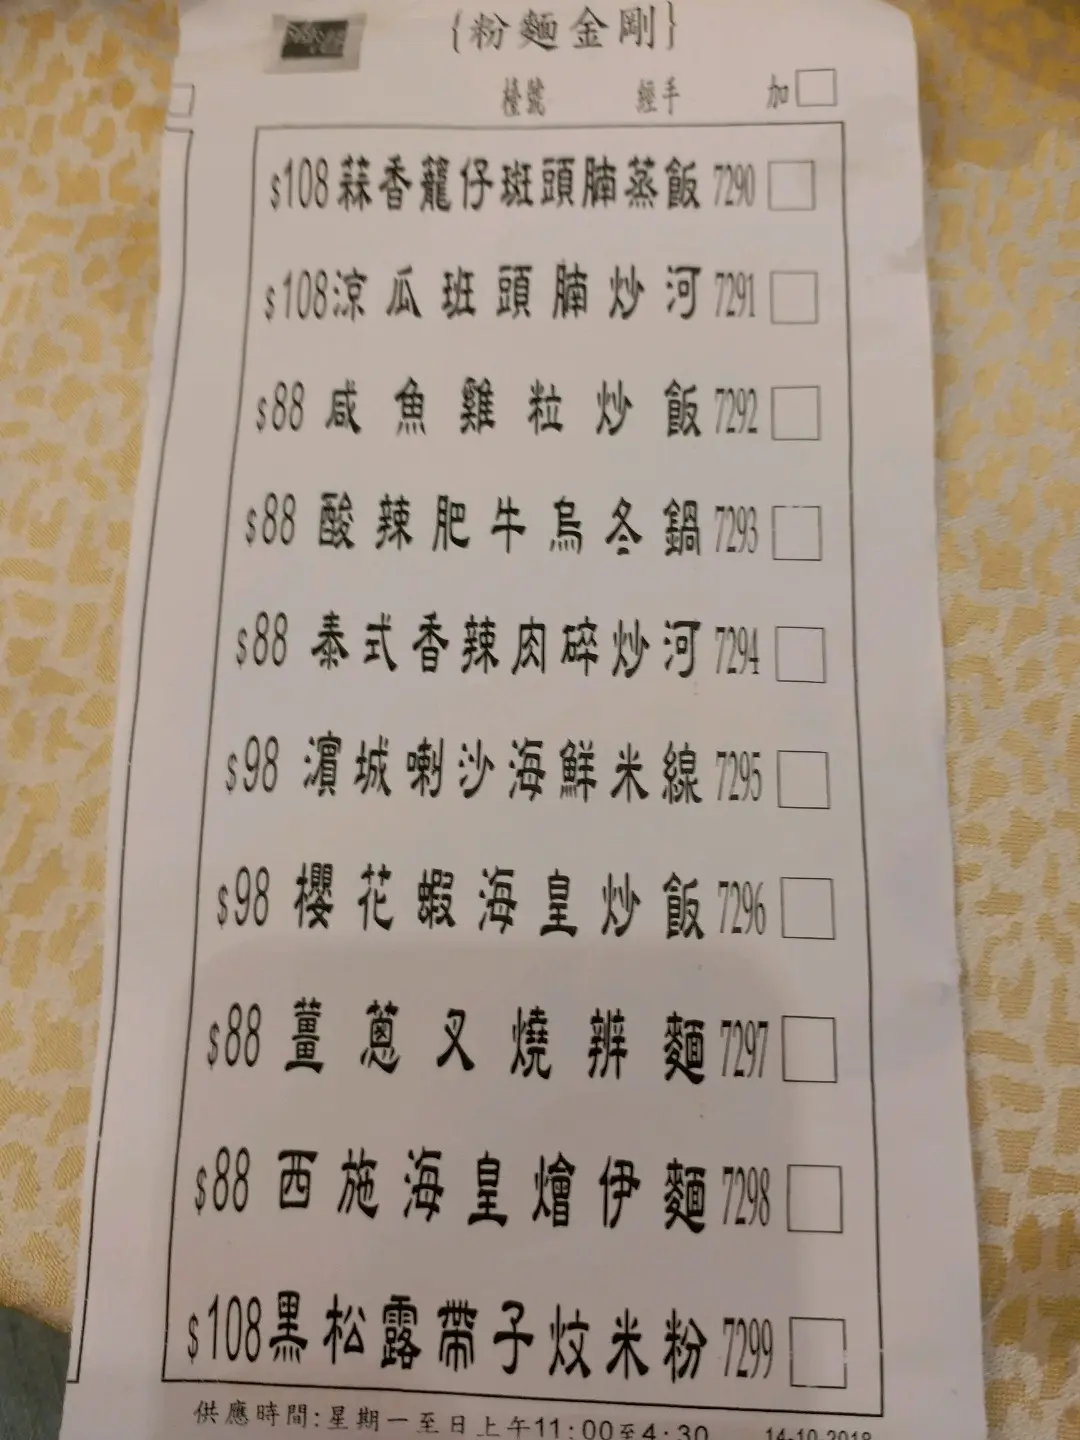 {粉麵金剛}
檯號 經手 加
$108 蒜香籠仔斑頭腩蒸飯 7290
$108 涼瓜班頭腩炒河 7291
$88 咸魚雞粒炒飯 7292
$88 酸辣肥牛烏冬鍋 7293
$88 泰式香辣肉碎炒河 7294
$98 濱城喇沙海鮮米線 7295
$98 櫻花蝦海皇炒飯 7296
$88 薑蔥叉燒辦麵 7297
$88 西施海皇燴伊麵 7298
$108 黑松露帶子炆米粉 7299
供應時間:星期一至日上午11:00至4:30 14-10-2018